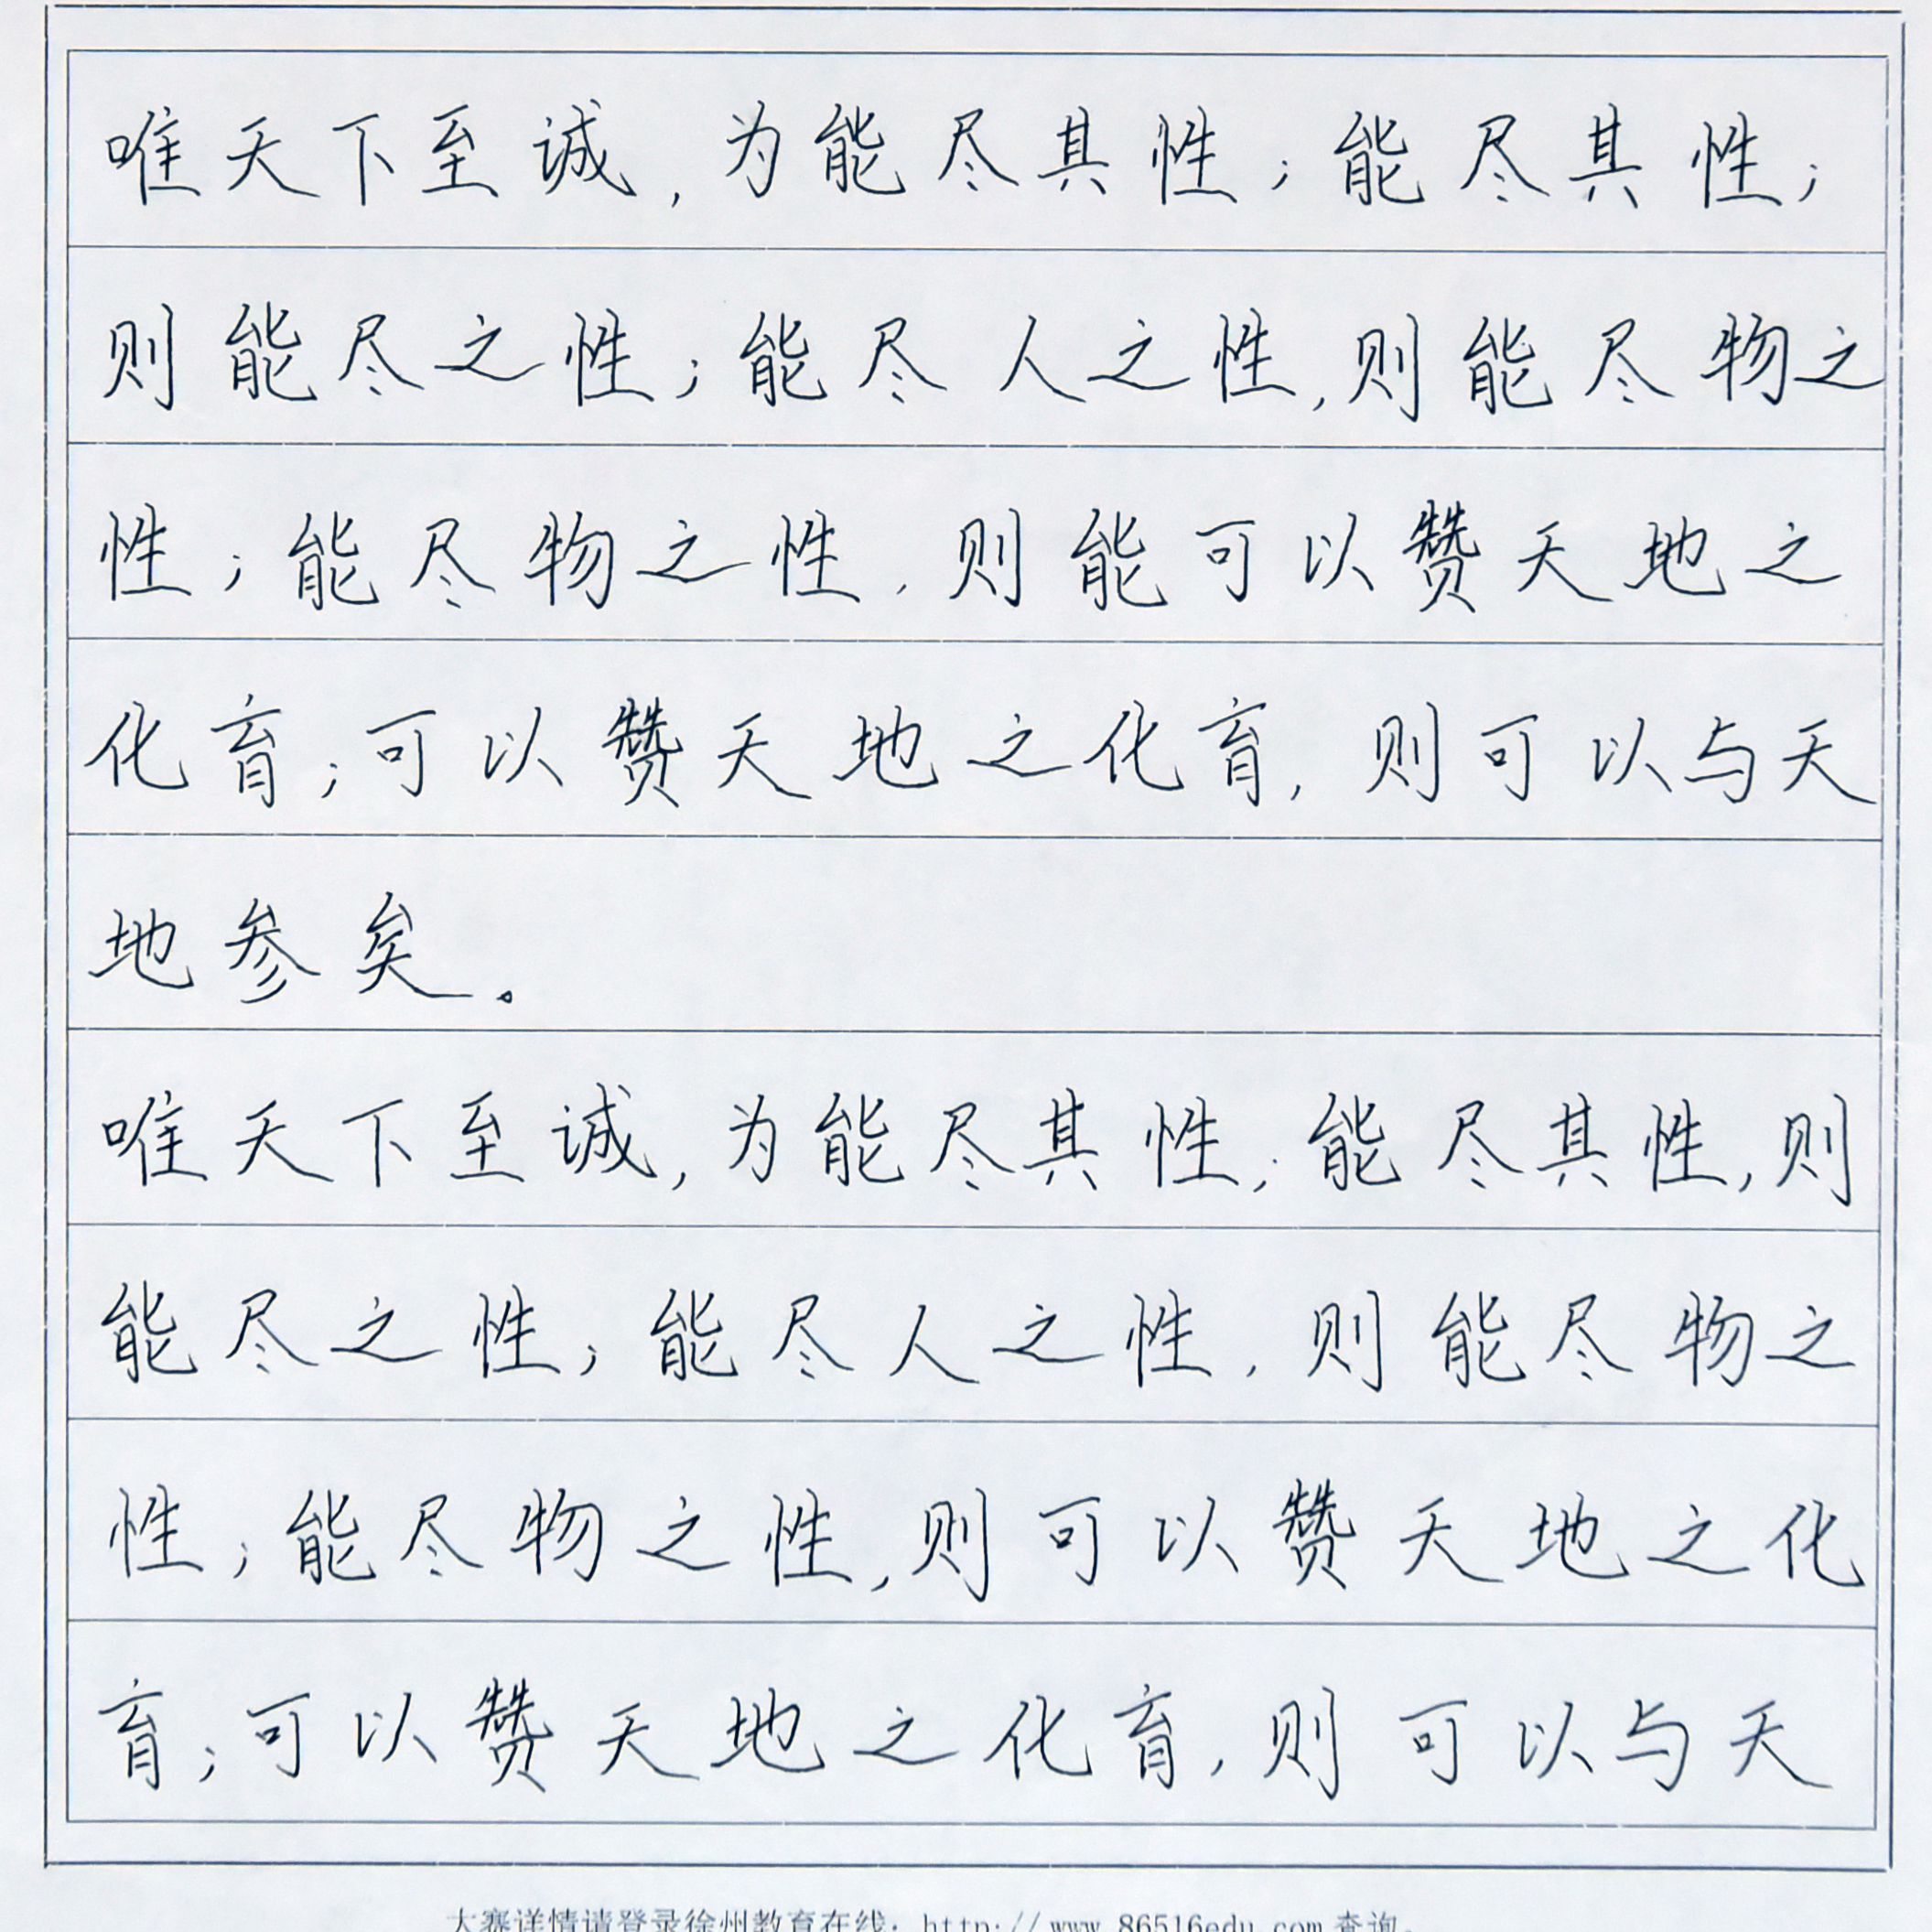 唯天下至诚,为能尽其性;能尽其性;
则能尽之性;能尽人之性,则能尽物之
性;能尽物之性,则能可以赞天地之
化育;可以赞天地之化育,则可以与天
地参矣。
唯天下至诚,为能尽其性;能尽其性,则
能尽之性;能尽人之性,则能尽物之
性;能尽物之性,则可以赞天地之化
育;可以赞天地之化育,则可以与天
大赛详情请登录徐州教育在线:http://www.86516edu.com查询。